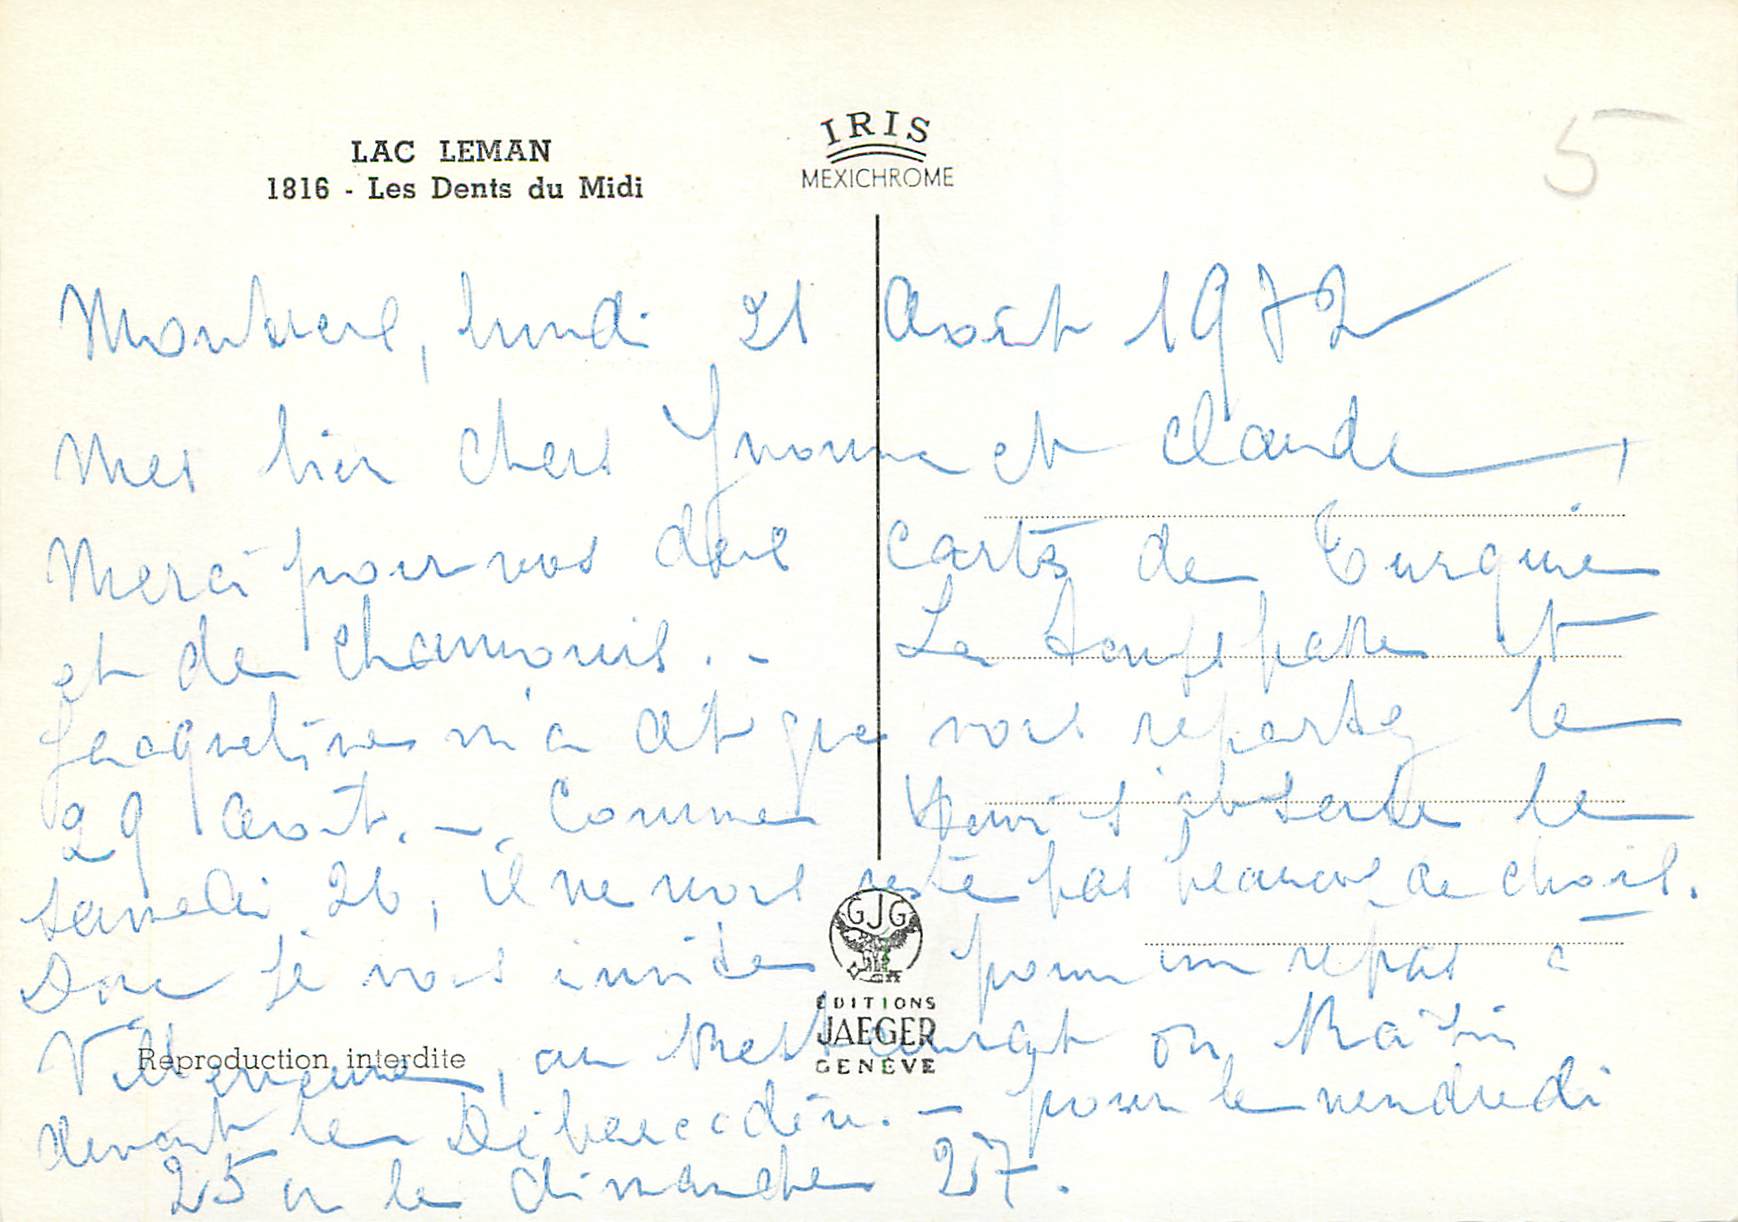 LAC LEMAN
1816 - Les Dents du Midi
IRIS
MEXICHROME
5
Montreux, lundi 21 Août 1972
Mes bien chers Yvonne et Claude,
Merci pour vos deux cartes de Turquie
et de Chamonix. - La
Jacqueline m'a dit que vous repartez le
29 Août. - Comme s'absente le
samedi 26, il ne nous reste pas beaucoup de choix.
Donc je vous invite pour un repas à
Villeneuve, au Restaurant du Raisin
devant le Débarcadère. - pour le vendredi
25 ou le dimanche 27.
GJG
ÉDITIONS
JAEGER
GENÈVE
Reproduction interdite